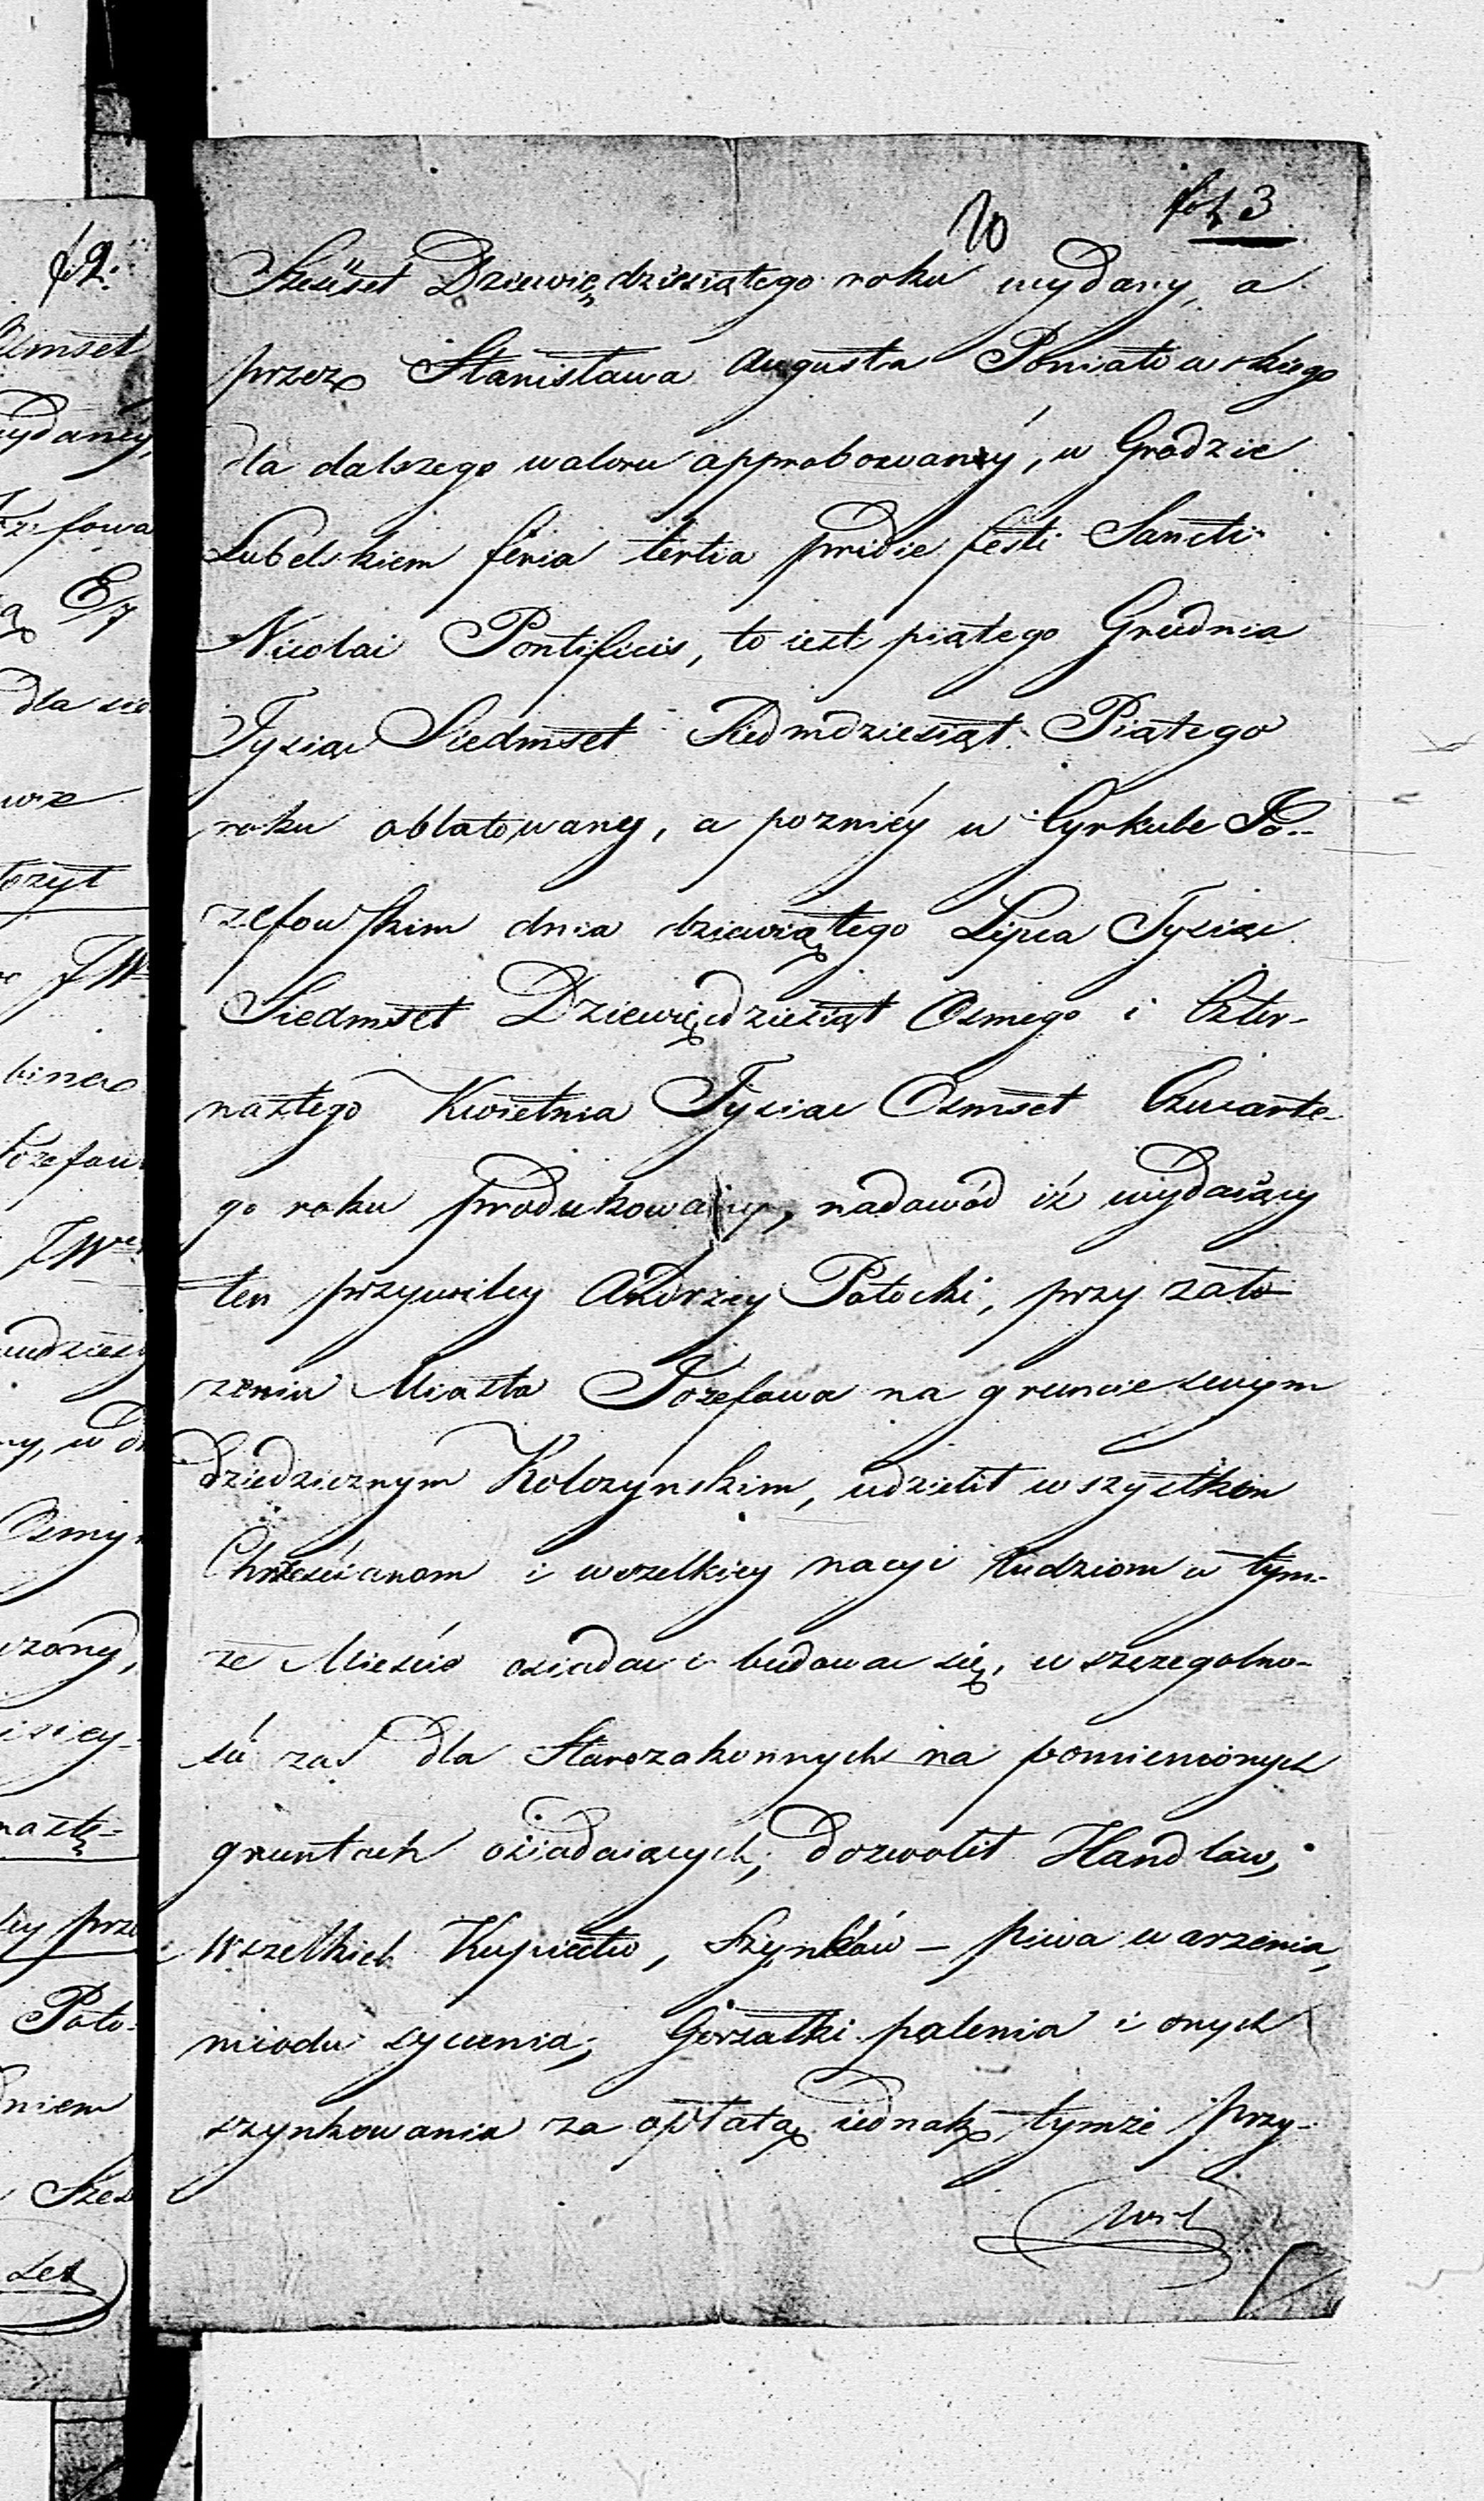 fol 3
10
Sześset Dziewięćdziesiątego roku wydany, a
przez Stanisława Augusta Poniatowskiego
dla dalszego waloru approbowany, w Grodzie
Lubelskiem feria tertia pridie festi Sancti
Nicolai Pontificis, to iest piątego Grudnia
Tysiąc Siedmset Siedmdziesiąt Piątego
roku oblatowany, a pozniéy w Cyrkule Jo-
zefowskim dnia dziewiątego Lipca Tysiąc
Siedmset Dziewięćdziesiąt Osmego i Czter-
nastego Kwietnia Tysiąc Osmset Czwarte-
go roku produkowany, nadawód iż wydaiący
ten przywiley Andrzey Potocki, przy zało-
zeniu Miasta Jozefowa na gruncie swym
dziedzicznym Kolczynskim, udzielił wszystkim
Chrześcianom i wszelkiey nacyi ludziom w tym-
ze Mieście osiadac i budowac się, w szczegolno-
ści zaś dla Starozakonnych na pomienionych
gruntach osiadaiących, dozwolił Handlów,
wszelkich Kupiectw, Szynków – piwa warzenia,
miodu sycenia, Gorzałki palenia i onych
szynkowania za opłatą iednak tymże przy-
f 2.
Osmset
wydany,
fowa
dla sie
wie
JW
Jozefow
JW
Osmy
przo
Poto-
dniem
Szes